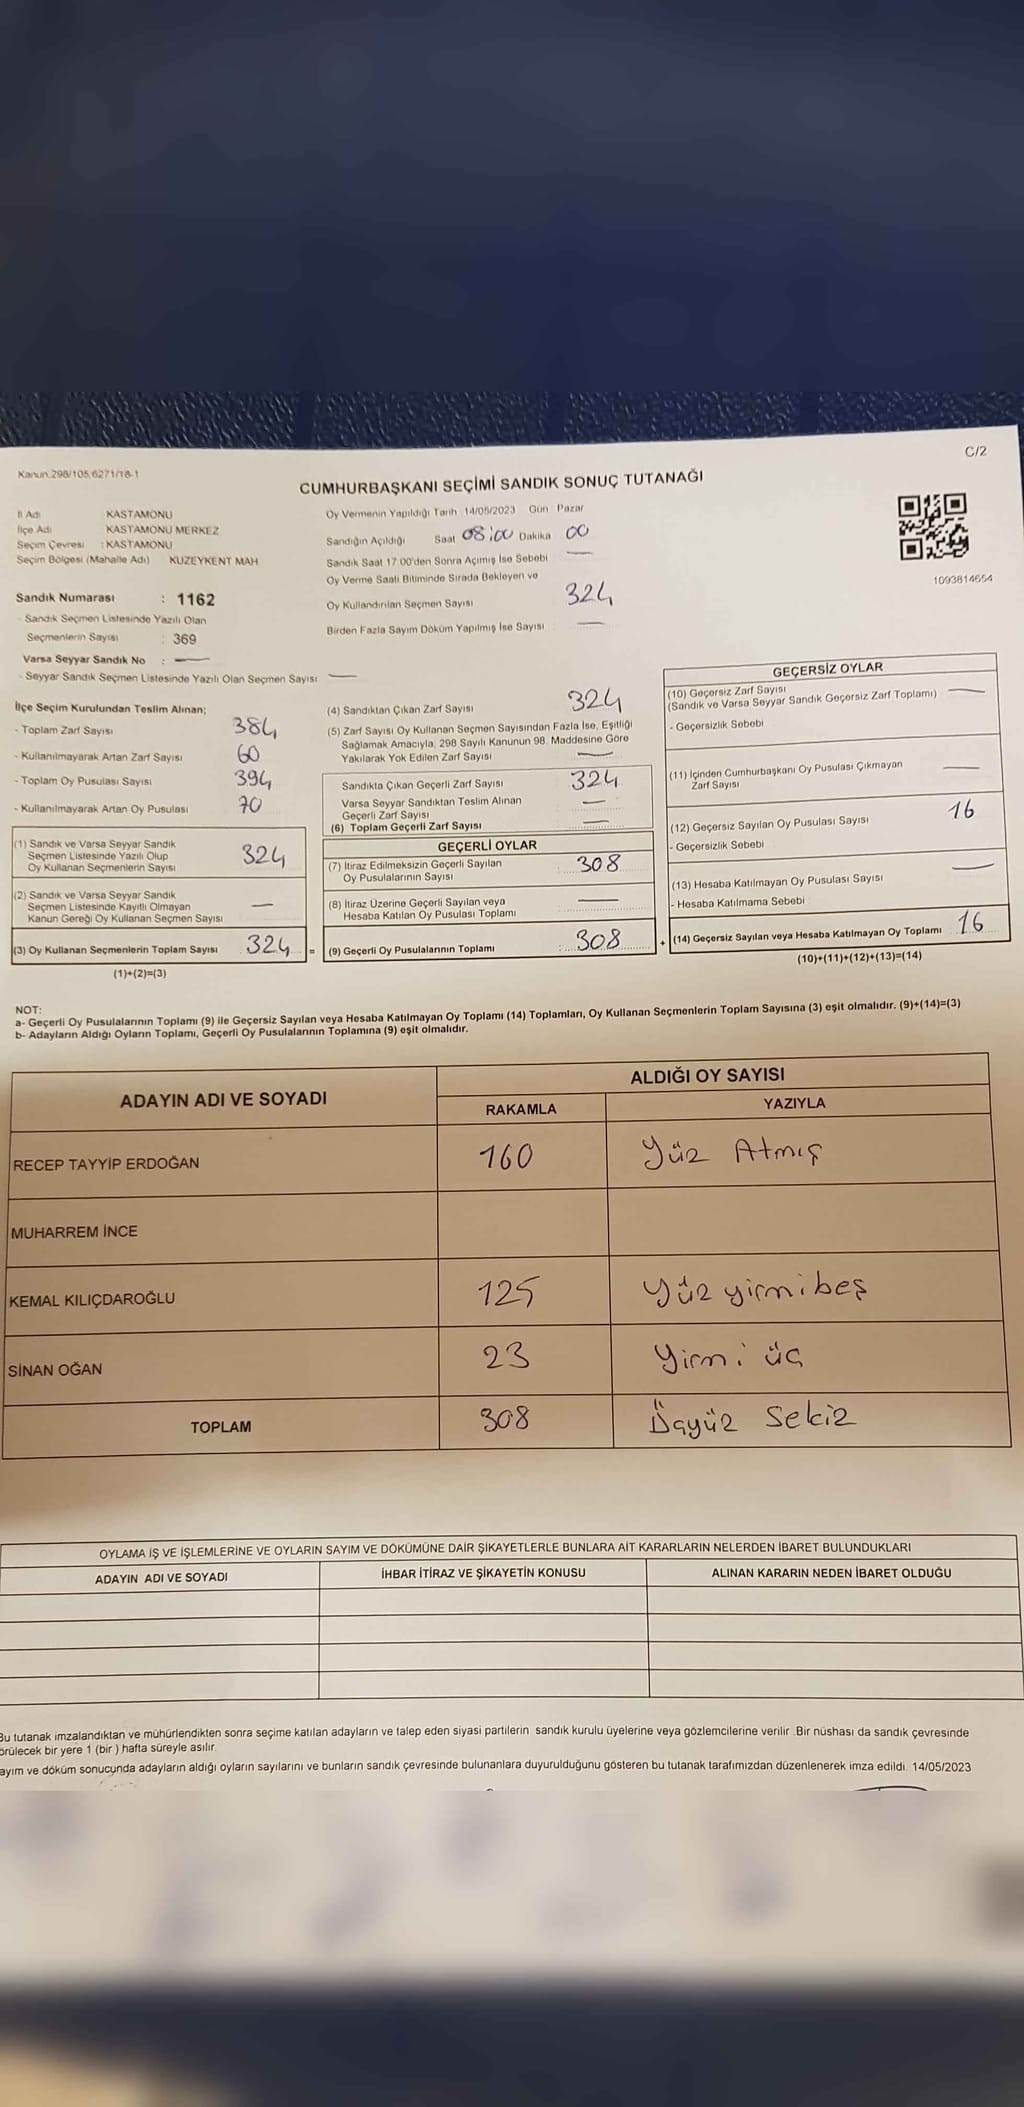 C/2
Kanun.298/105,6271/18-1
CUMHURBAŞKANI SEÇİMİ SANDIK SONUÇ TUTANAĞI
İl Adı KASTAMONU
İlçe Adı KASTAMONU MERKEZ
Seçim Çevresi : KASTAMONU
Seçim Bölgesi (Mahalle Adı) KUZEYKENT MAH
Sandık Numarası : 1162
- Sandık Seçmen Listesinde Yazılı Olan
Seçmenlerin Sayısı : 369
Varsa Seyyar Sandık No : —
- Seyyar Sandık Seçmen Listesinde Yazılı Olan Seçmen Sayısı —
Oy Vermenin Yapıldığı Tarih 14/05/2023 Gün Pazar
Sandığın Açıldığı Saat 08:00 Dakika 00
Sandık Saat 17.00'den Sonra Açımış İse Sebebi —
Oy Verme Saati Bitiminde Sırada Bekleyen ve
Oy Kullandırılan Seçmen Sayısı 324
Birden Fazla Sayım Döküm Yapılmış İse Sayısı —
1093814654
İlçe Seçim Kurulundan Teslim Alınan;
- Toplam Zarf Sayısı 384
- Kullanılmayarak Artan Zarf Sayısı 60
- Toplam Oy Pusulası Sayısı 394
- Kullanılmayarak Artan Oy Pusulası 70
(1) Sandık ve Varsa Seyyar Sandık
Seçmen Listesinde Yazılı Olup
Oy Kullanan Seçmenlerin Sayısı 324
(2) Sandık ve Varsa Seyyar Sandık
Seçmen Listesinde Kayıtlı Olmayan
Kanun Gereği Oy Kullanan Seçmen Sayısı —
(3) Oy Kullanan Seçmenlerin Toplam Sayısı 324 =
(1)+(2)=(3)
(4) Sandıktan Çıkan Zarf Sayısı 324
(5) Zarf Sayısı Oy Kullanan Seçmen Sayısından Fazla İse, Eşitliği
Sağlamak Amacıyla, 298 Sayılı Kanunun 98. Maddesine Göre
Yakılarak Yok Edilen Zarf Sayısı —
Sandıkta Çıkan Geçerli Zarf Sayısı 324
Varsa Seyyar Sandıktan Teslim Alınan
Geçerli Zarf Sayısı —
(6) Toplam Geçerli Zarf Sayısı —
GEÇERLİ OYLAR
(7) İtiraz Edilmeksizin Geçerli Sayılan
Oy Pusulalarının Sayısı : 308
(8) İtiraz Üzerine Geçerli Sayılan veya
Hesaba Katılan Oy Pusulası Toplamı —
(9) Geçerli Oy Pusulalarının Toplamı : 308 +
GEÇERSİZ OYLAR
(10) Geçersiz Zarf Sayısı
(Sandık ve Varsa Seyyar Sandık Geçersiz Zarf Toplamı) —
- Geçersizlik Sebebi
(11) İçinden Cumhurbaşkanı Oy Pusulası Çıkmayan
Zarf Sayısı —
(12) Geçersiz Sayılan Oy Pusulası Sayısı 16
- Geçersizlik Sebebi
(13) Hesaba Katılmayan Oy Pusulası Sayısı —
- Hesaba Katılmama Sebebi
(14) Geçersiz Sayılan veya Hesaba Katılmayan Oy Toplamı 16
(10)+(11)+(12)+(13)=(14)
NOT:
a- Geçerli Oy Pusulalarının Toplamı (9) ile Geçersiz Sayılan veya Hesaba Katılmayan Oy Toplamı (14) Toplamları, Oy Kullanan Seçmenlerin Toplam Sayısına (3) eşit olmalıdır. (9)+(14)=(3)
b- Adayların Aldığı Oyların Toplamı, Geçerli Oy Pusulalarının Toplamına (9) eşit olmalıdır.
ADAYIN ADI VE SOYADI ALDIĞI OY SAYISI
RAKAMLA YAZIYLA
RECEP TAYYİP ERDOĞAN 160 Yüz Atmış
MUHARREM İNCE
KEMAL KILIÇDAROĞLU 125 Yüz yirmibeş
SİNAN OĞAN 23 Yirmi üç
TOPLAM 308 Üçyüz Sekiz
OYLAMA İŞ VE İŞLEMLERİNE VE OYLARIN SAYIM VE DÖKÜMÜNE DAİR ŞİKAYETLERLE BUNLARA AİT KARARLARIN NELERDEN İBARET BULUNDUKLARI
ADAYIN ADI VE SOYADI İHBAR İTİRAZ VE ŞİKAYETİN KONUSU ALINAN KARARIN NEDEN İBARET OLDUĞU
Bu tutanak imzalandıktan ve mühürlendikten sonra seçime katılan adayların ve talep eden siyasi partilerin sandık kurulu üyelerine veya gözlemcilerine verilir. Bir nüshası da sandık çevresinde
örülecek bir yere 1 (bir ) hafta süreyle asılır.
ayım ve döküm sonucunda adayların aldığı oyların sayılarını ve bunların sandık çevresinde bulunanlara duyurulduğunu gösteren bu tutanak tarafımızdan düzenlenerek imza edildi. 14/05/2023